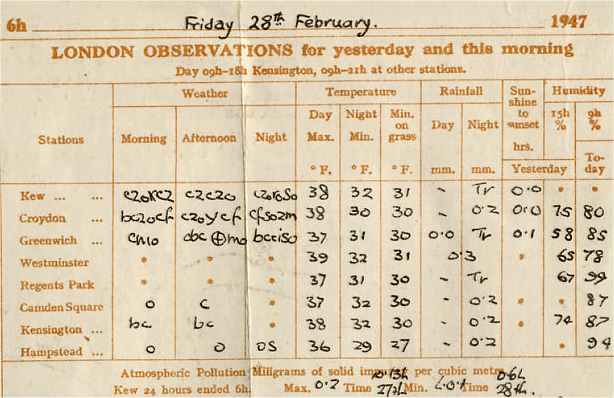 6h Friday 28th February. 1947
LONDON OBSERVATIONS for yesterday and this morning
Day 09h-18h Kensington, 09h-21h at other stations.
Weather Temperature Rainfall Sun-shine to sunset Humidity
Stations Morning Afternoon Night Day Max. Night Min. Min. on grass Day Night hrs. 15h % 9h %
° F. ° F. ° F. mm. mm. Yesterday To-day
Kew ... ... c2c20 38 32 31 - Tr 0.0 • •
Croydon ... bc20cf c20ycf 38 30 30 - 0.2 0.0 75 80
Greenwich ... 37 31 30 0.0 Tr 0.1 58 85
Westminster • • • 39 32 31 0.3 • 65 78
Regents Park • • • 37 31 30 - Tr • 67 99
Camden Square o c 37 32 30 - 0.2 • • 87
Kensington ... bc bc 38 32 30 - 0.2 • 74 87
Hampstead ... o o os 36 29 27 - 0.2 • 94
Atmospheric Pollution Miligrams of solid per cubic metre
Kew 24 hours ended 6h. Max. 0.2 Time 13h 27th Min. Time 06h 28th.